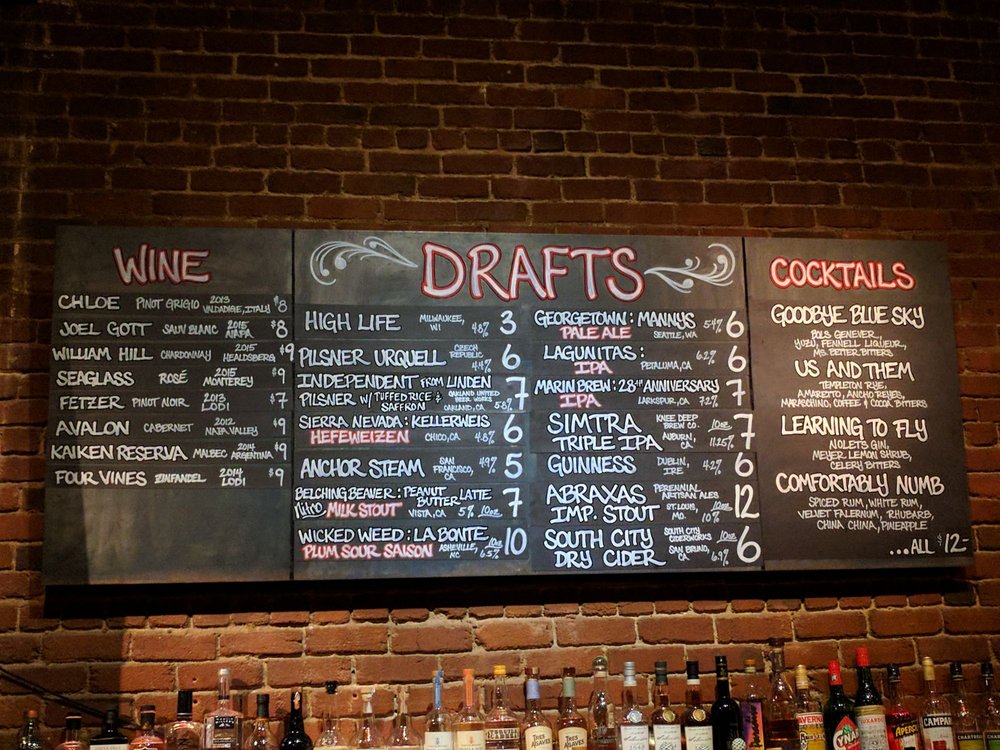 WINE
CHLOE PINOT GRIGIO 2013 VALDADIGE, ITALY $8
JOEL GOTT SAUV BLANC 2015 NAPA $8
WILLIAM HILL CHARDONNAY 2015 HEALDSBERG $9
SEAGLASS ROSÉ 2015 MONTEREY $9
FETZER PINOT NOIR 2013 LODI $7
AVALON CABERNET 2012 NAPA VALLEY $9
KAIKEN RESERVA MALBEC 2014 ARGENTINA $9
FOUR VINES ZINFANDEL 2014 LODI $9
DRAFTS
HIGH LIFE MILWAUKEE, WI 4.8% 3
PILSNER URQUELL CZECH REPUBLIC 4.4% 6
INDEPENDENT FROM LINDEN
PILSNER W/ TUFFED RICE & SAFFRON OAKLAND UNITED BEER WORKS OAKLAND, CA 5.8% 7
SIERRA NEVADA: KELLERWEIS
HEFEWEIZEN CHICO, CA 4.8% 6
ANCHOR STEAM SAN FRANCISCO, CA 4.9% 5
BELCHING BEAVER: PEANUT BUTTER LATTE
NITRO MILK STOUT VISTA, CA 5% 10oz 7
WICKED WEED: LA BONTE
PLUM SOUR SAISON ASHEVILLE, NC 10oz 6.5% 10
GEORGETOWN: MANNYS
PALE ALE SEATTLE, WA 5.4% 6
LAGUNITAS:
IPA PETALUMA, CA 6.2% 6
MARIN BREW: 28TH ANNIVERSARY
IPA LARKSPUR, CA 7.2% 7
SIMTRA
TRIPLE IPA KNEE DEEP BREW CO. AUBURN, CA 10oz 11.25% 7
GUINNESS DUBLIN, IRE 4.2% 6
ABRAXAS
IMP. STOUT PERENNIAL ARTISAN ALES ST. LOUIS, MO. 10oz 10% 12
SOUTH CITY
DRY CIDER SOUTH CITY CIDERWORKS SAN BRUNO, CA 10oz 6.9% 6
COCKTAILS
GOODBYE BLUE SKY
BOLS GENEVER,
YUZU, FENNELL LIQUEUR,
MS. BETTER BITTERS
US AND THEM
TEMPLETON RYE,
AMARETTO, ANCHO REYES,
MARASCHINO, COFFEE & COCOA BITTERS
LEARNING TO FLY
NOLETS GIN,
MEYER LEMON SHRUB,
CELERY BITTERS
COMFORTABLY NUMB
SPICED RUM, WHITE RUM,
VELVET FALERNUM, RHUBARB,
CHINA CHINA, PINEAPPLE
...ALL $12
TRES AGAVES
TRES AGAVES
CYNAR
LUXARDO
APEROL
CAMPARI